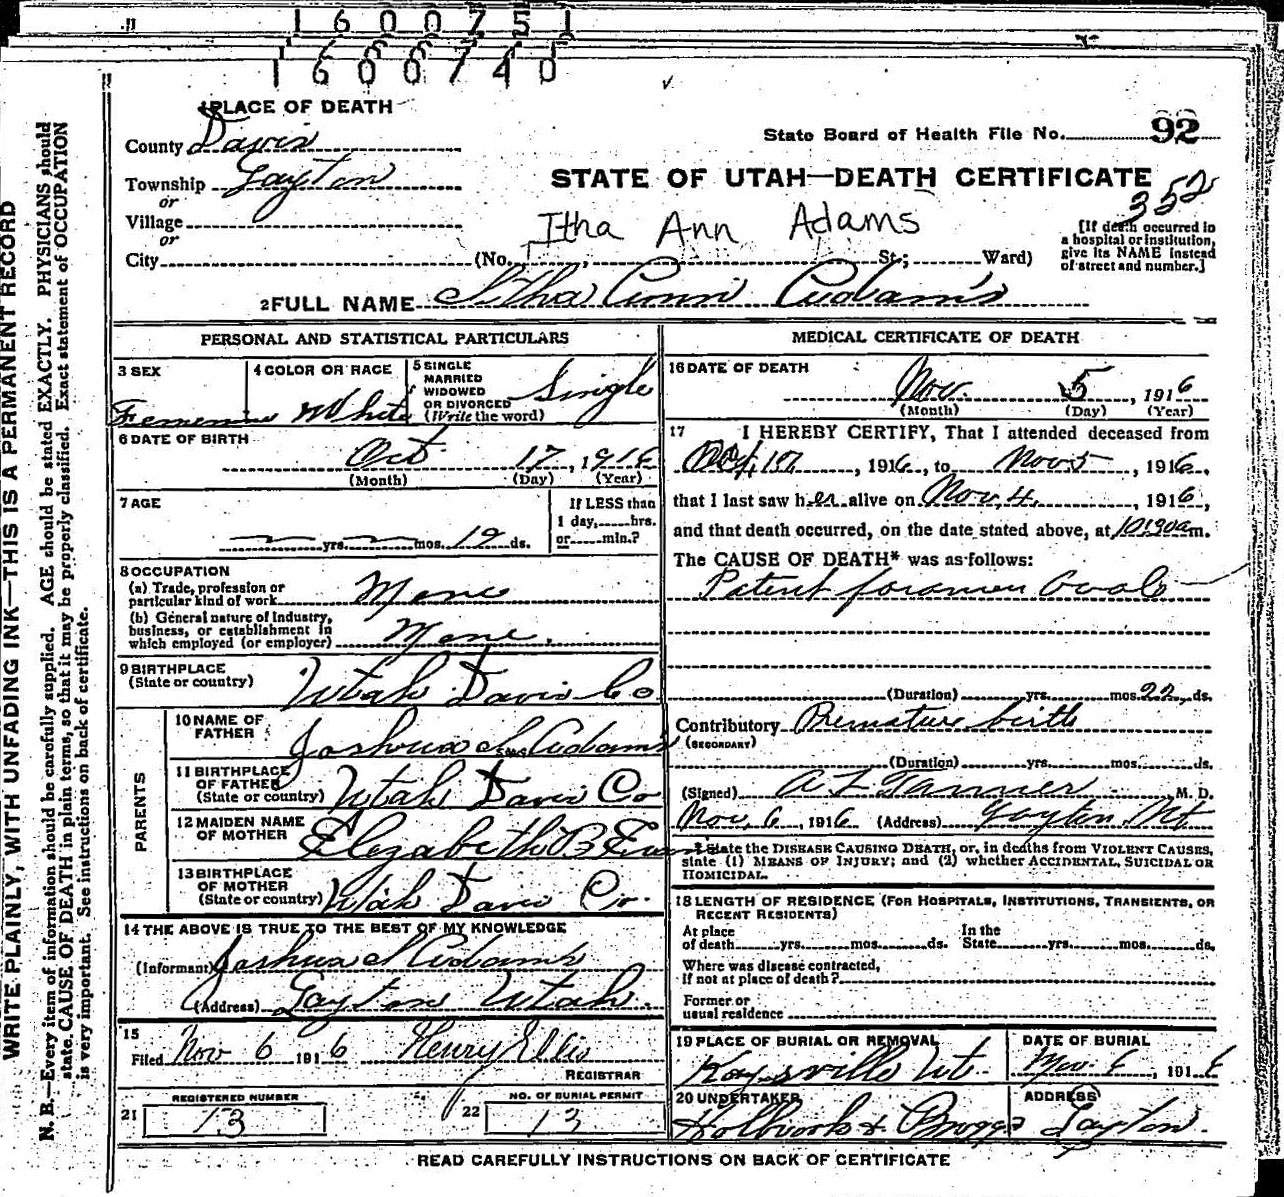 1600751
1600740
1 PLACE OF DEATH
County Davis
State Board of Health File No. 92
Township Layton
or
STATE OF UTAH—DEATH CERTIFICATE
352
Village
or
Itha Ann Adams
City (No. , St.; Ward)
[If death occurred in
a hospital or institution,
give its NAME instead
of street and number.]
2 FULL NAME Itha Ann Adams
PERSONAL AND STATISTICAL PARTICULARS
3 SEX
4 COLOR OR RACE White
5 SINGLE
MARRIED
WIDOWED
OR DIVORCED
(Write the word) Single
6 DATE OF BIRTH
Oct 17, 1916
(Month) (Day) (Year)
7 AGE
If LESS than
1 day, hrs.
or min.?
yrs. mos. 19 ds.
8 OCCUPATION
(a) Trade, profession or
particular kind of work
(b) General nature of industry,
business, or establishment in
which employed (or employer)
9 BIRTHPLACE
(State or country) Utah Davis Co
PARENTS
10 NAME OF
FATHER Joshua S Adams
11 BIRTHPLACE
OF FATHER
(State or country) Utah Davis Co
12 MAIDEN NAME
OF MOTHER Elizabeth B Evans
13 BIRTHPLACE
OF MOTHER
(State or country) Utah Davis Co.
14 THE ABOVE IS TRUE TO THE BEST OF MY KNOWLEDGE
(Informant) Joshua S Adams
(Address) Layton Utah.
15
Filed Nov 6 1916 Henry Ellis
REGISTRAR
REGISTERED NUMBER
21 13
NO. OF BURIAL PERMIT
22 13
MEDICAL CERTIFICATE OF DEATH
16 DATE OF DEATH
Nov. 5, 1916
(Month) (Day) (Year)
17 I HEREBY CERTIFY, That I attended deceased from
Oct, 17, 1916, to Nov 5, 1916,
that I last saw her alive on Nov, 4, 1916,
and that death occurred, on the date stated above, at 10:30 a m.
The CAUSE OF DEATH* was as follows:
Patent foramen Ovale
(Duration) yrs. mos. 22 ds.
Contributory Premature birth
(SECONDARY)
(Duration) yrs. mos. ds.
(Signed) A L Tanner M. D.
Nov, 6, 1916 (Address) Layton Ut
* State the DISEASE CAUSING DEATH, or, in deaths from VIOLENT CAUSES,
state (1) MEANS OF INJURY; and (2) whether ACCIDENTAL, SUICIDAL OR
HOMICIDAL.
18 LENGTH OF RESIDENCE (FOR HOSPITALS, INSTITUTIONS, TRANSIENTS, OR
RECENT RESIDENTS)
At place
of death yrs. mos. ds. In the
State yrs. mos. ds.
Where was disease contracted,
if not at place of death?
Former or
usual residence
19 PLACE OF BURIAL OR REMOVAL
Kaysville Ut.
DATE OF BURIAL
Nov. 6, 1916
20 UNDERTAKER
Holbrook & Briggs
ADDRESS
Layton.
READ CAREFULLY INSTRUCTIONS ON BACK OF CERTIFICATE
WRITE PLAINLY, WITH UNFADING INK—THIS IS A PERMANENT RECORD
N. B.—Every item of information should be carefully supplied. AGE should be stated EXACTLY. PHYSICIANS should
state CAUSE OF DEATH in plain terms, so that it may be properly classified. Exact statement of OCCUPATION
is very important. See instructions on back of certificate.